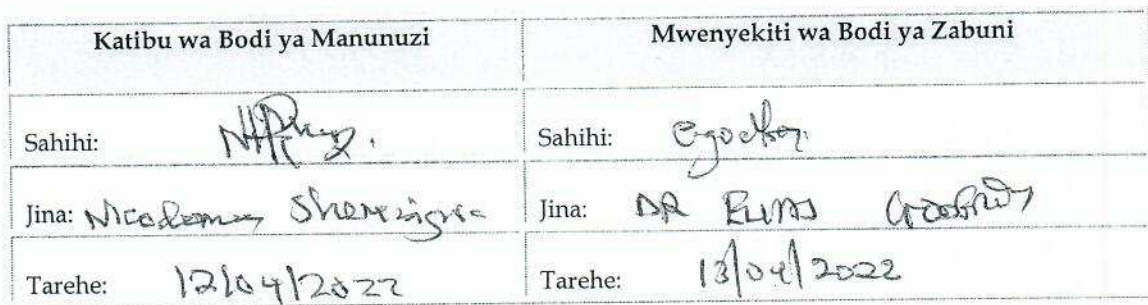 Katibu wa Bodi ya Manunuzi
Mwenyekiti wa Bodi ya Zabuni
Sahihi:
Sahihi:
Jina: Nicodemus
Jina: DR ELIAS GODFREY
Tarehe: 12/04/2022
Tarehe: 13/04/2022